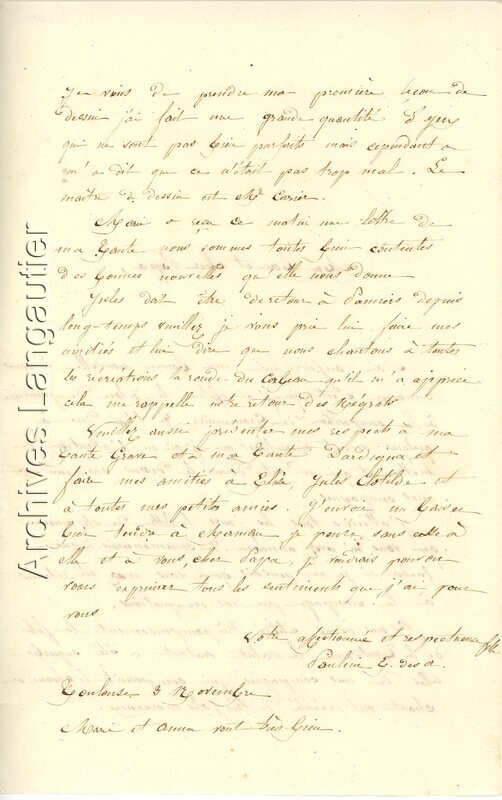 Je viens de prendre ma première leçon de
dessin j'ai fait une grande quantité d'yeux
qui ne sont pas bien parfaits mais cependant on
m'a dit que ce n'était pas trop mal. Le
maître de dessin est Mr
Marie a reçu ce matin une lettre de
ma tante nous sommes toutes bien contentes
des bonnes nouvelles qu'elle nous donne
Jules doit être de retour à Pamiers depuis
long-temps veuillez je vous prie lui faire mes
amitiés et lui dire que nous chantons à toutes
les récréations la ronde du corbeau qu'il m'a apprise
cela me rappelle notre retour des Négrats
Veuillez aussi présenter mes respects à ma
tante Grave et à ma tante Dardigna et
faire mes amitiés à Elisa, Jules Clotilde et
à toutes mes petites amies. J'envoie un baiser
bien tendre à Maman je pense sans cesse à
elle et à vous, cher Papa, je voudrais pouvoir
vous exprimer tous les sentiments que j'ai pour
vous
Votre affectionnée et respectueuse fille
Pauline
Toulouse 3 Novembre
Marie et Anna vont très bien.
Archives Langautier